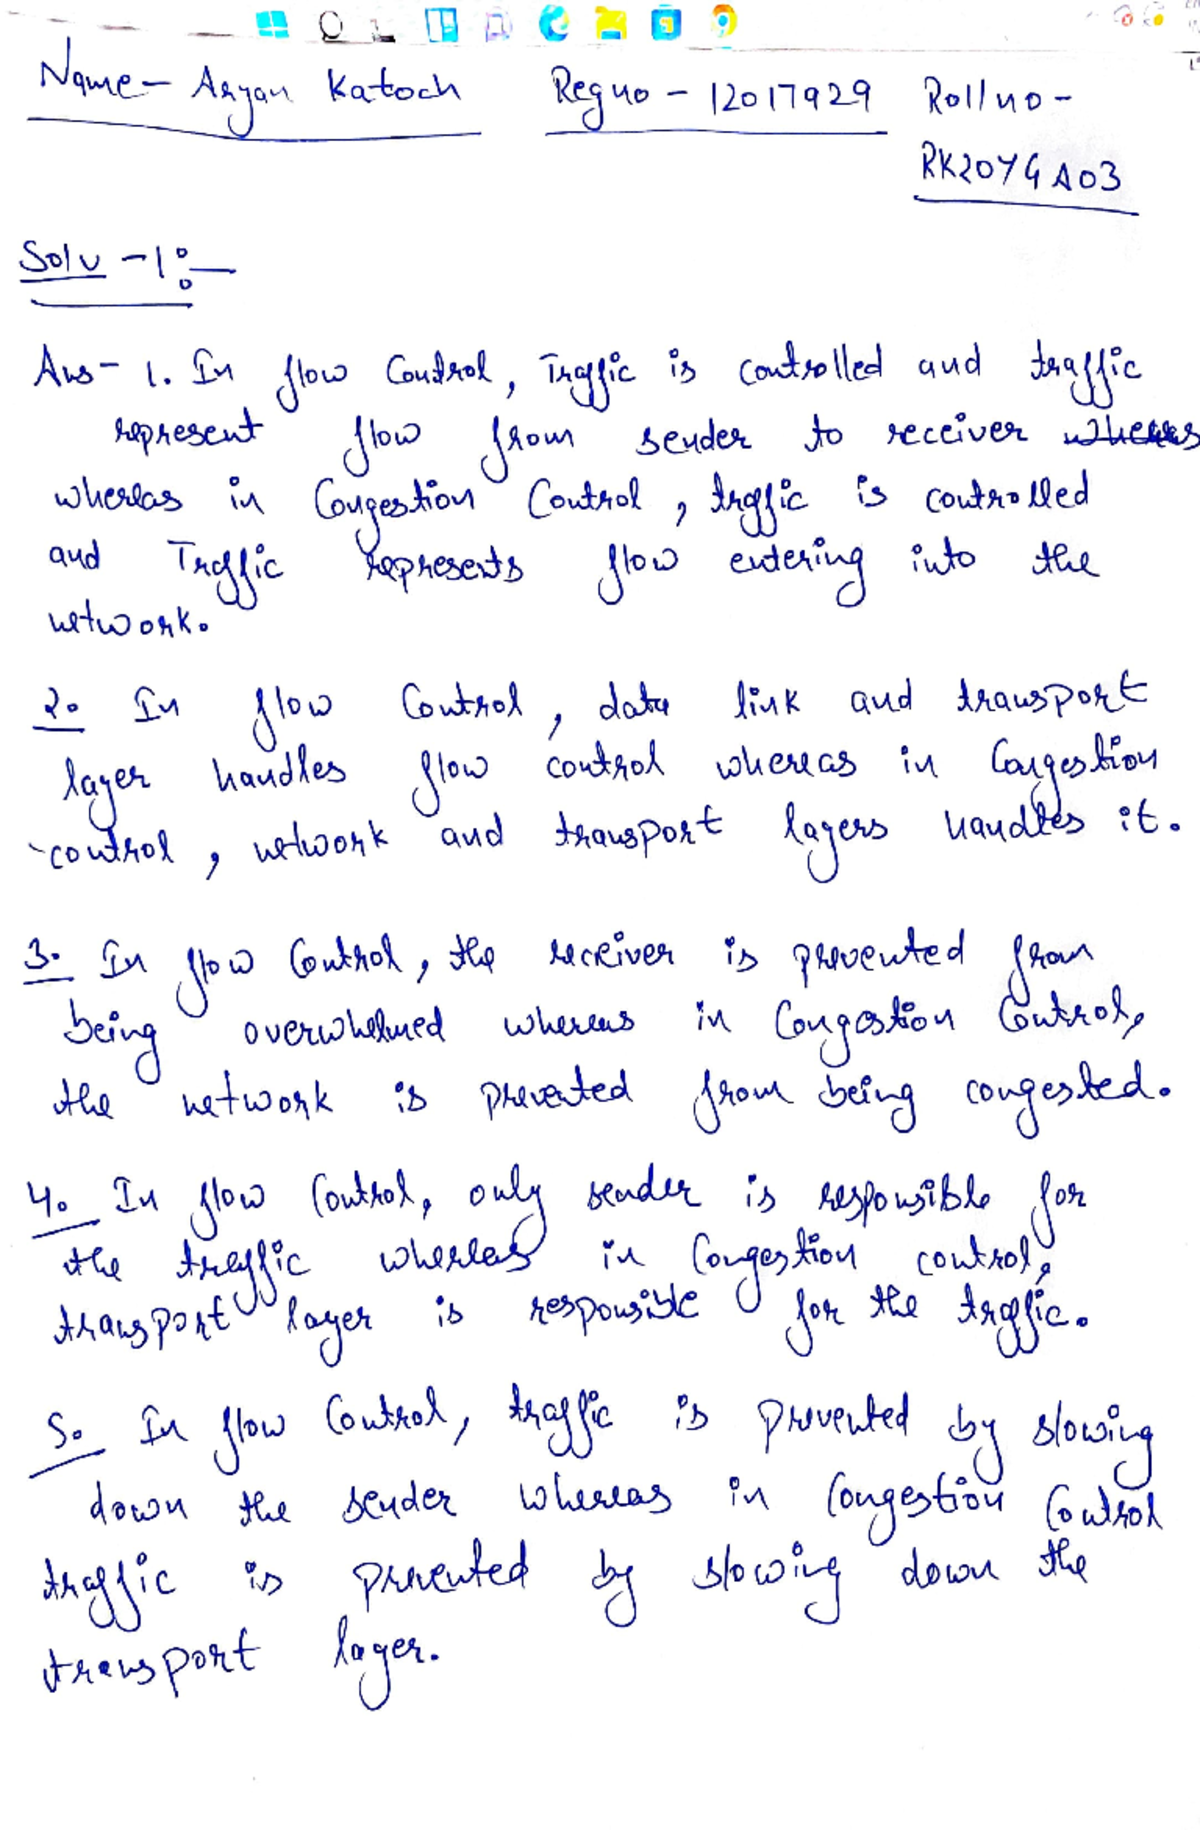 Name - Aryan Katoch Reg no - 12017929 Roll no -
RK20YGA03
Solu - 1 :-
Ans - 1. In flow Control, Traffic is controlled and traffic
represent flow from sender to receiver whereas
whereas in Congestion Control, traffic is controlled
and Traffic represents flow entering into the
network.
2. In flow Control, data link and transport
layer handles flow control whereas in Congestion
control, network and transport layers handles it.
3. In flow Control, the receiver is prevented from
being overwhelmed whereas in Congestion Control,
the network is prevented from being congested.
4. In flow Control, only sender is responsible for
the traffic whereas in Congestion control,
transport layer is responsible for the traffic.
5. In flow Control, traffic is prevented by slowing
down the sender whereas in Congestion Control
traffic is prevented by slowing down the
transport layer.